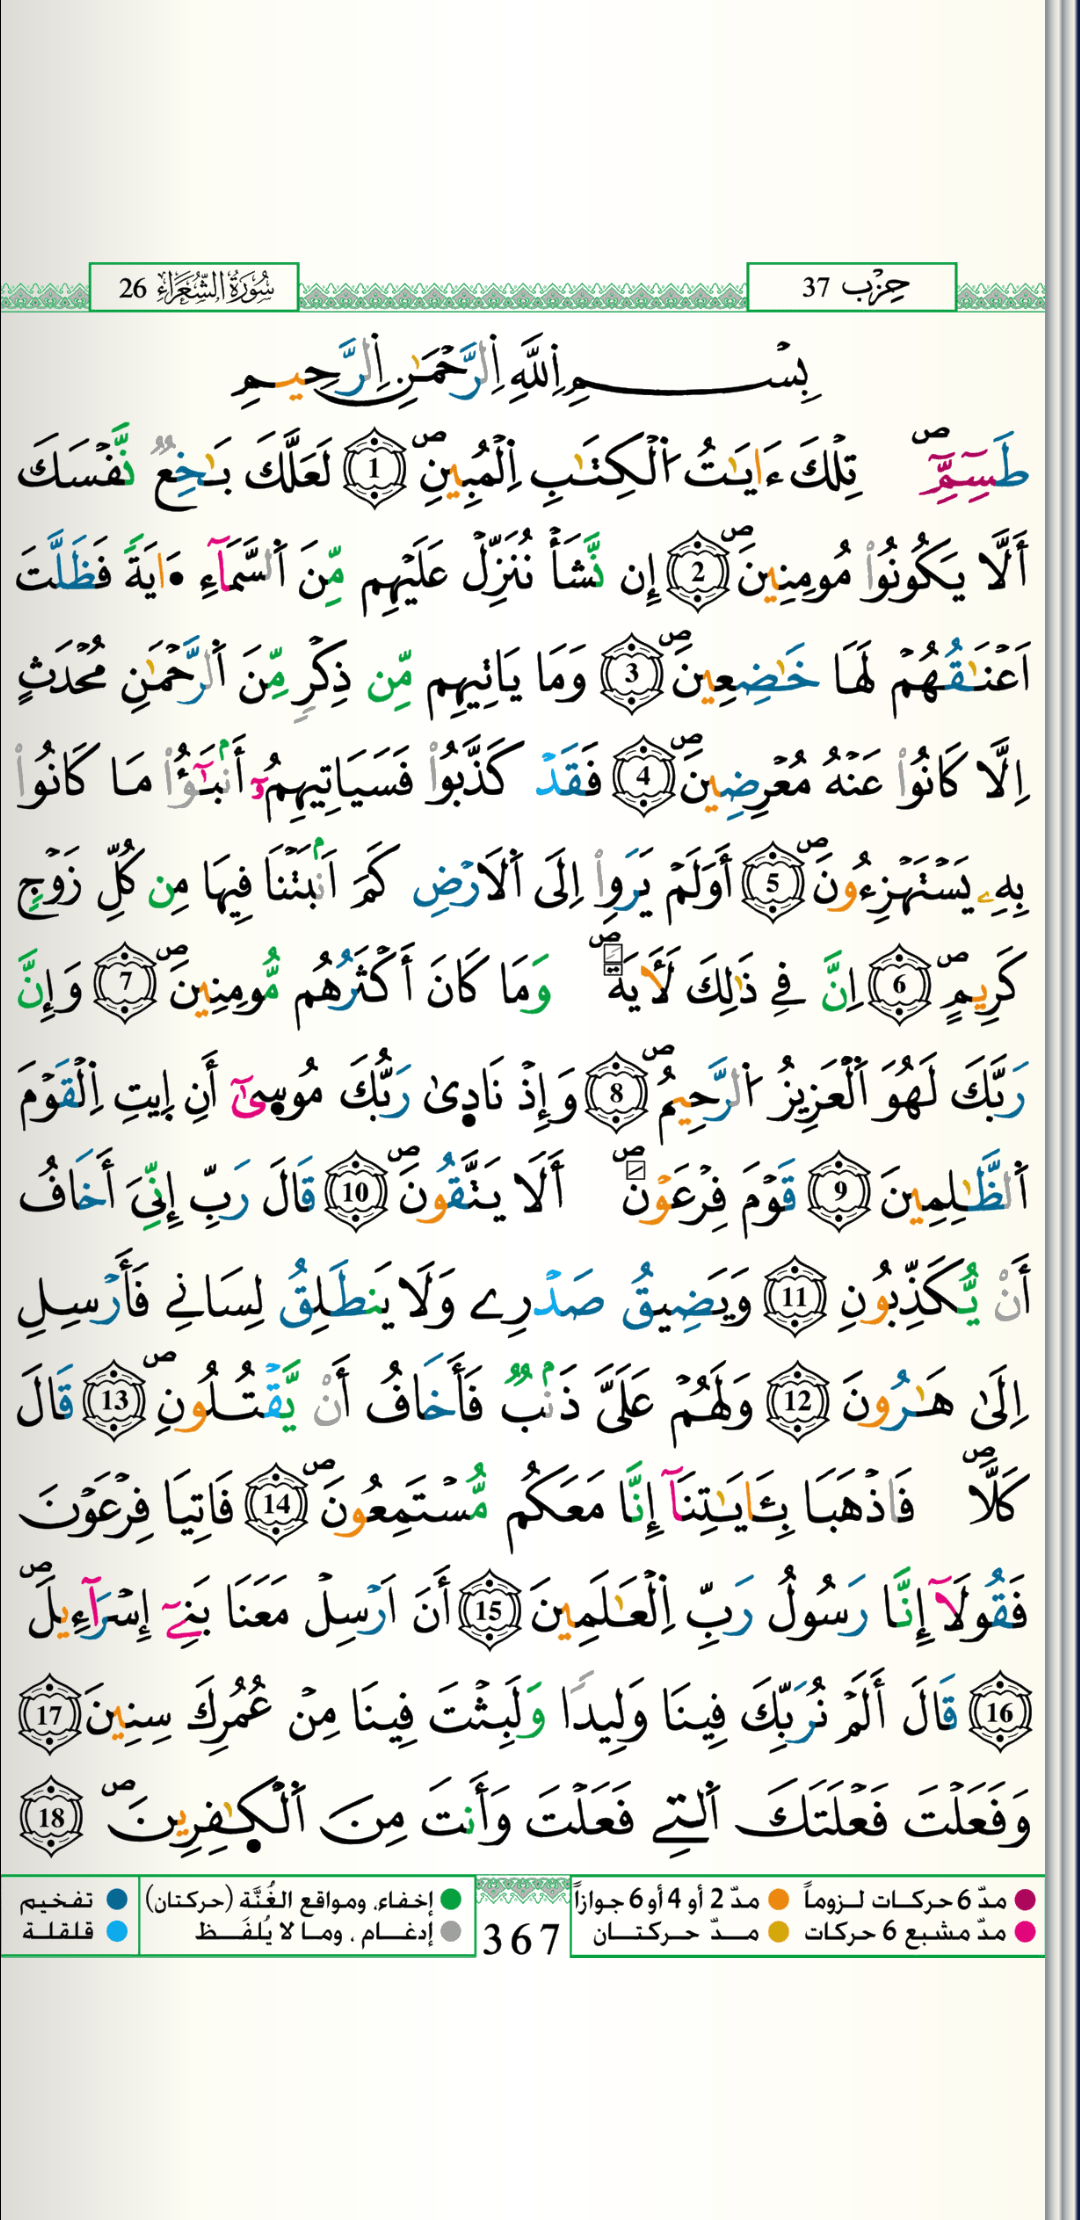 سُورَةُ الشُّعَرَاءِ 26
حِزْب 37
بِسْمِ اِللَّهِ اِلرَّحْمَٰنِ اِلرَّحِيمِ
طَسِٓمِّٓۖ تِلْكَ ءَايَٰتُ اُلْكِتَٰبِ اِلْمُبِينِۖ 1 لَعَلَّكَ بَٰخِعٞ نَّفْسَكَ
أَلَّا يَكُونُواْ مُومِنِينَۖ 2 إِن نَّشَأْ نُنَزِّلْ عَلَيْهِم مِّنَ اَلسَّمَآءِ ءَايَةٗ فَظَلَّتَ
اَعْنَٰقُهُمْ لَهَا خَٰضِعِينَۖ 3 وَمَا يَاتِيهِم مِّن ذِكْرٖ مِّنَ اَلرَّحْمَٰنِ مُحْدَثٍ
اِلَّا كَانُواْ عَنْهُ مُعْرِضِينَۖ 4 فَقَدْ كَذَّبُواْ فَسَيَاتِيهِمُۥٓ أَنۢبَٰٓؤُاْ مَا كَانُواْ
بِهِۦ يَسْتَهْزِءُونَۖ 5 أَوَلَمْ يَرَوِاْ اِلَى اَلَارْضِ كَمَ اَنۢبَتْنَا فِيهَا مِن كُلِّ زَوْجٖ
كَرِيمٍۖ 6 اِنَّ فِے ذَٰلِكَ لَأٓيَةٗۖ وَمَا كَانَ أَكْثَرُهُم مُّومِنِينَۖ 7 وَإِنَّ
رَبَّكَ لَهُوَ اَلْعَزِيزُ اُلرَّحِيمُۖ 8 وَإِذْ نَادِىٰ رَبُّكَ مُوسِىٰٓ أَنِ اِيتِ اِلْقَوْمَ
اَلظَّٰلِمِينَ 9 قَوْمَ فِرْعَوْنَۖ أَلَا يَتَّقُونَۖ 10 قَالَ رَبِّ إِنِّيَ أَخَافُ
أَنْ يُّكَذِّبُونِ 11 وَيَضِيقُ صَدْرِے وَلَا يَنطَلِقُ لِسَانِے فَأَرْسِلِ
اِلَىٰ هَٰرُونَ 12 وَلَهُمْ عَلَيَّ ذَنۢبٞ فَأَخَافُ أَنْ يَّقْتُلُونِۖ 13 قَالَ
كَلَّاۖ فَاذْهَبَا بِـَٔايَٰتِنَآ إِنَّا مَعَكُم مُّسْتَمِعُونَۖ 14 فَاتِيَا فِرْعَوْنَ
فَقُولَآ إِنَّا رَسُولُ رَبِّ اِلْعَٰلَمِينَ 15 أَنَ اَرْسِلْ مَعَنَا بَنِےٓ إِسْرَآءِيلَۖ
16 قَالَ أَلَمْ نُرَبِّكَ فِينَا وَلِيداٗ وَلَبِثْتَ فِينَا مِنْ عُمُرِكَ سِنِينَ 17
وَفَعَلْتَ فَعْلَتَكَ اَلتِے فَعَلْتَ وَأَنتَ مِنَ اَلْكٰ۪فِرِينَۖ 18
مدّ 6 حركات لزوماً مدّ 2 أو 4 أو 6 جوازاً إخفاء، ومواقع الغُنَّة (حركتان) تفخيم
مدّ مشبع 6 حركات مدّ حركتان إدغام ، وما لا يُلفَظ قلقلة
367